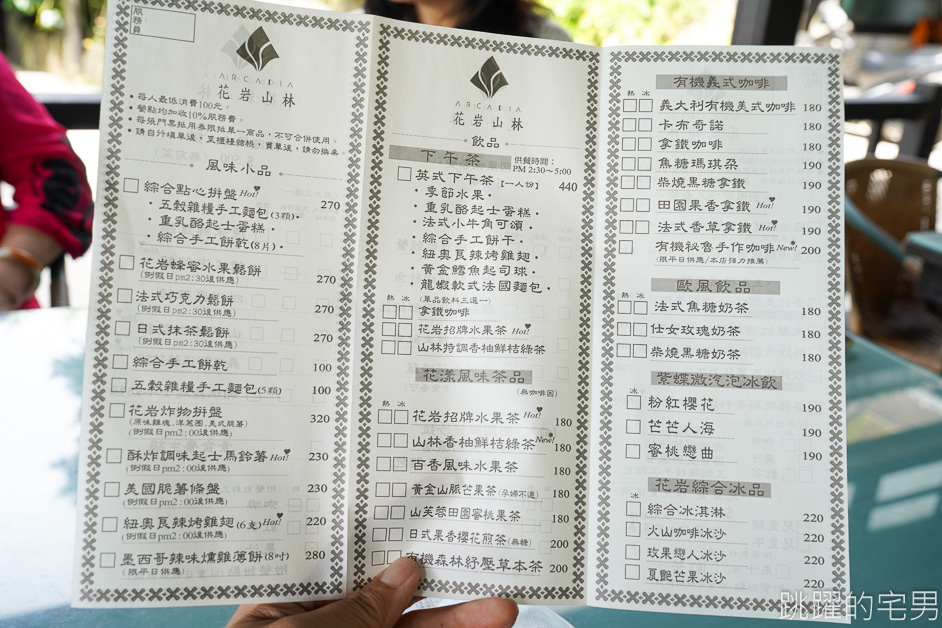 服務員
ARCADIA
花岩山林
•每人最低消費100元。
•餐點均加收10%服務費。
•每張門票抵用券限抵單一商品，不可合併使用。
•請自行填單後，至櫃檯結帳，買單後，請勿換桌。
風味小品
綜合點心拼盤 Hot! 270
•五穀雜糧手工麵包(3顆)•
•重乳酪起士蛋糕•
•綜合手工餅乾(8片)•
花岩蜂蜜水果鬆餅 270
(例假日pm2:30後供應)
法式巧克力鬆餅 270
(例假日pm2:30後供應)
日式抹茶鬆餅 270
(例假日pm2:30後供應)
綜合手工餅乾 100
五穀雜糧手工麵包(5顆) 100
花岩炸物拼盤 320
(原味雞塊.洋蔥圈.美式脆薯)
(例假日pm2:00後供應)
酥炸調味起士馬鈴薯 Hot! 230
(例假日pm2:00後供應)
美國脆薯條盤 230
(例假日pm2:00後供應)
紐奧良辣烤雞翅(6支) Hot! 220
(例假日pm2:00後供應)
墨西哥辣味燻雞薄餅(8吋) 280
(限平日供應)
ARCADIA
花岩山林
飲品
下午茶 供餐時間：
PM 2:30~5:00
英式下午茶【一人份】 440
•季節水果•
•重乳酪起士蛋糕•
•法式小牛角可頌•
•綜合手工餅干•
•紐奧良辣烤雞翅•
•黃金鱈魚起司球•
•龍蝦軟式法國麵包•
熱 冰 (單品飲料三選一)
拿鐵咖啡
花岩招牌水果茶 Hot!
山林特調香柚鮮桔綠茶
花漾風味茶品
熱 冰 (無咖啡因)
花岩招牌水果茶 Hot! 180
山林香柚鮮桔綠茶 New! 180
百香風味水果茶 180
黃金山脈芒果茶(孕婦不適) 180
山芙蓉田園蜜桃果茶 180
日式果香櫻花煎茶(無糖) 200
有機森林紓壓草本茶 200
有機義式咖啡
熱 冰
義大利有機美式咖啡 180
卡布奇諾 180
拿鐵咖啡 180
焦糖瑪琪朶 190
柴燒黑糖拿鐵 190
田園果香拿鐵 Hot! 190
法式香草拿鐵 Hot! 190
有機秘魯手作咖啡 New! 200
(限平日供應/本店強力推薦)
歐風飲品
熱 冰
法式焦糖奶茶 180
仕女玫瑰奶茶 180
柴燒黑糖奶茶 180
紫蝶微汽泡冰飲
冰
粉紅櫻花 190
芒芒人海 190
蜜桃戀曲 190
花岩綜合冰品
冰
綜合冰淇淋 220
火山咖啡冰沙 220
玫果戀人冰沙 220
夏艷芒果冰沙 220
跳躍的宅男